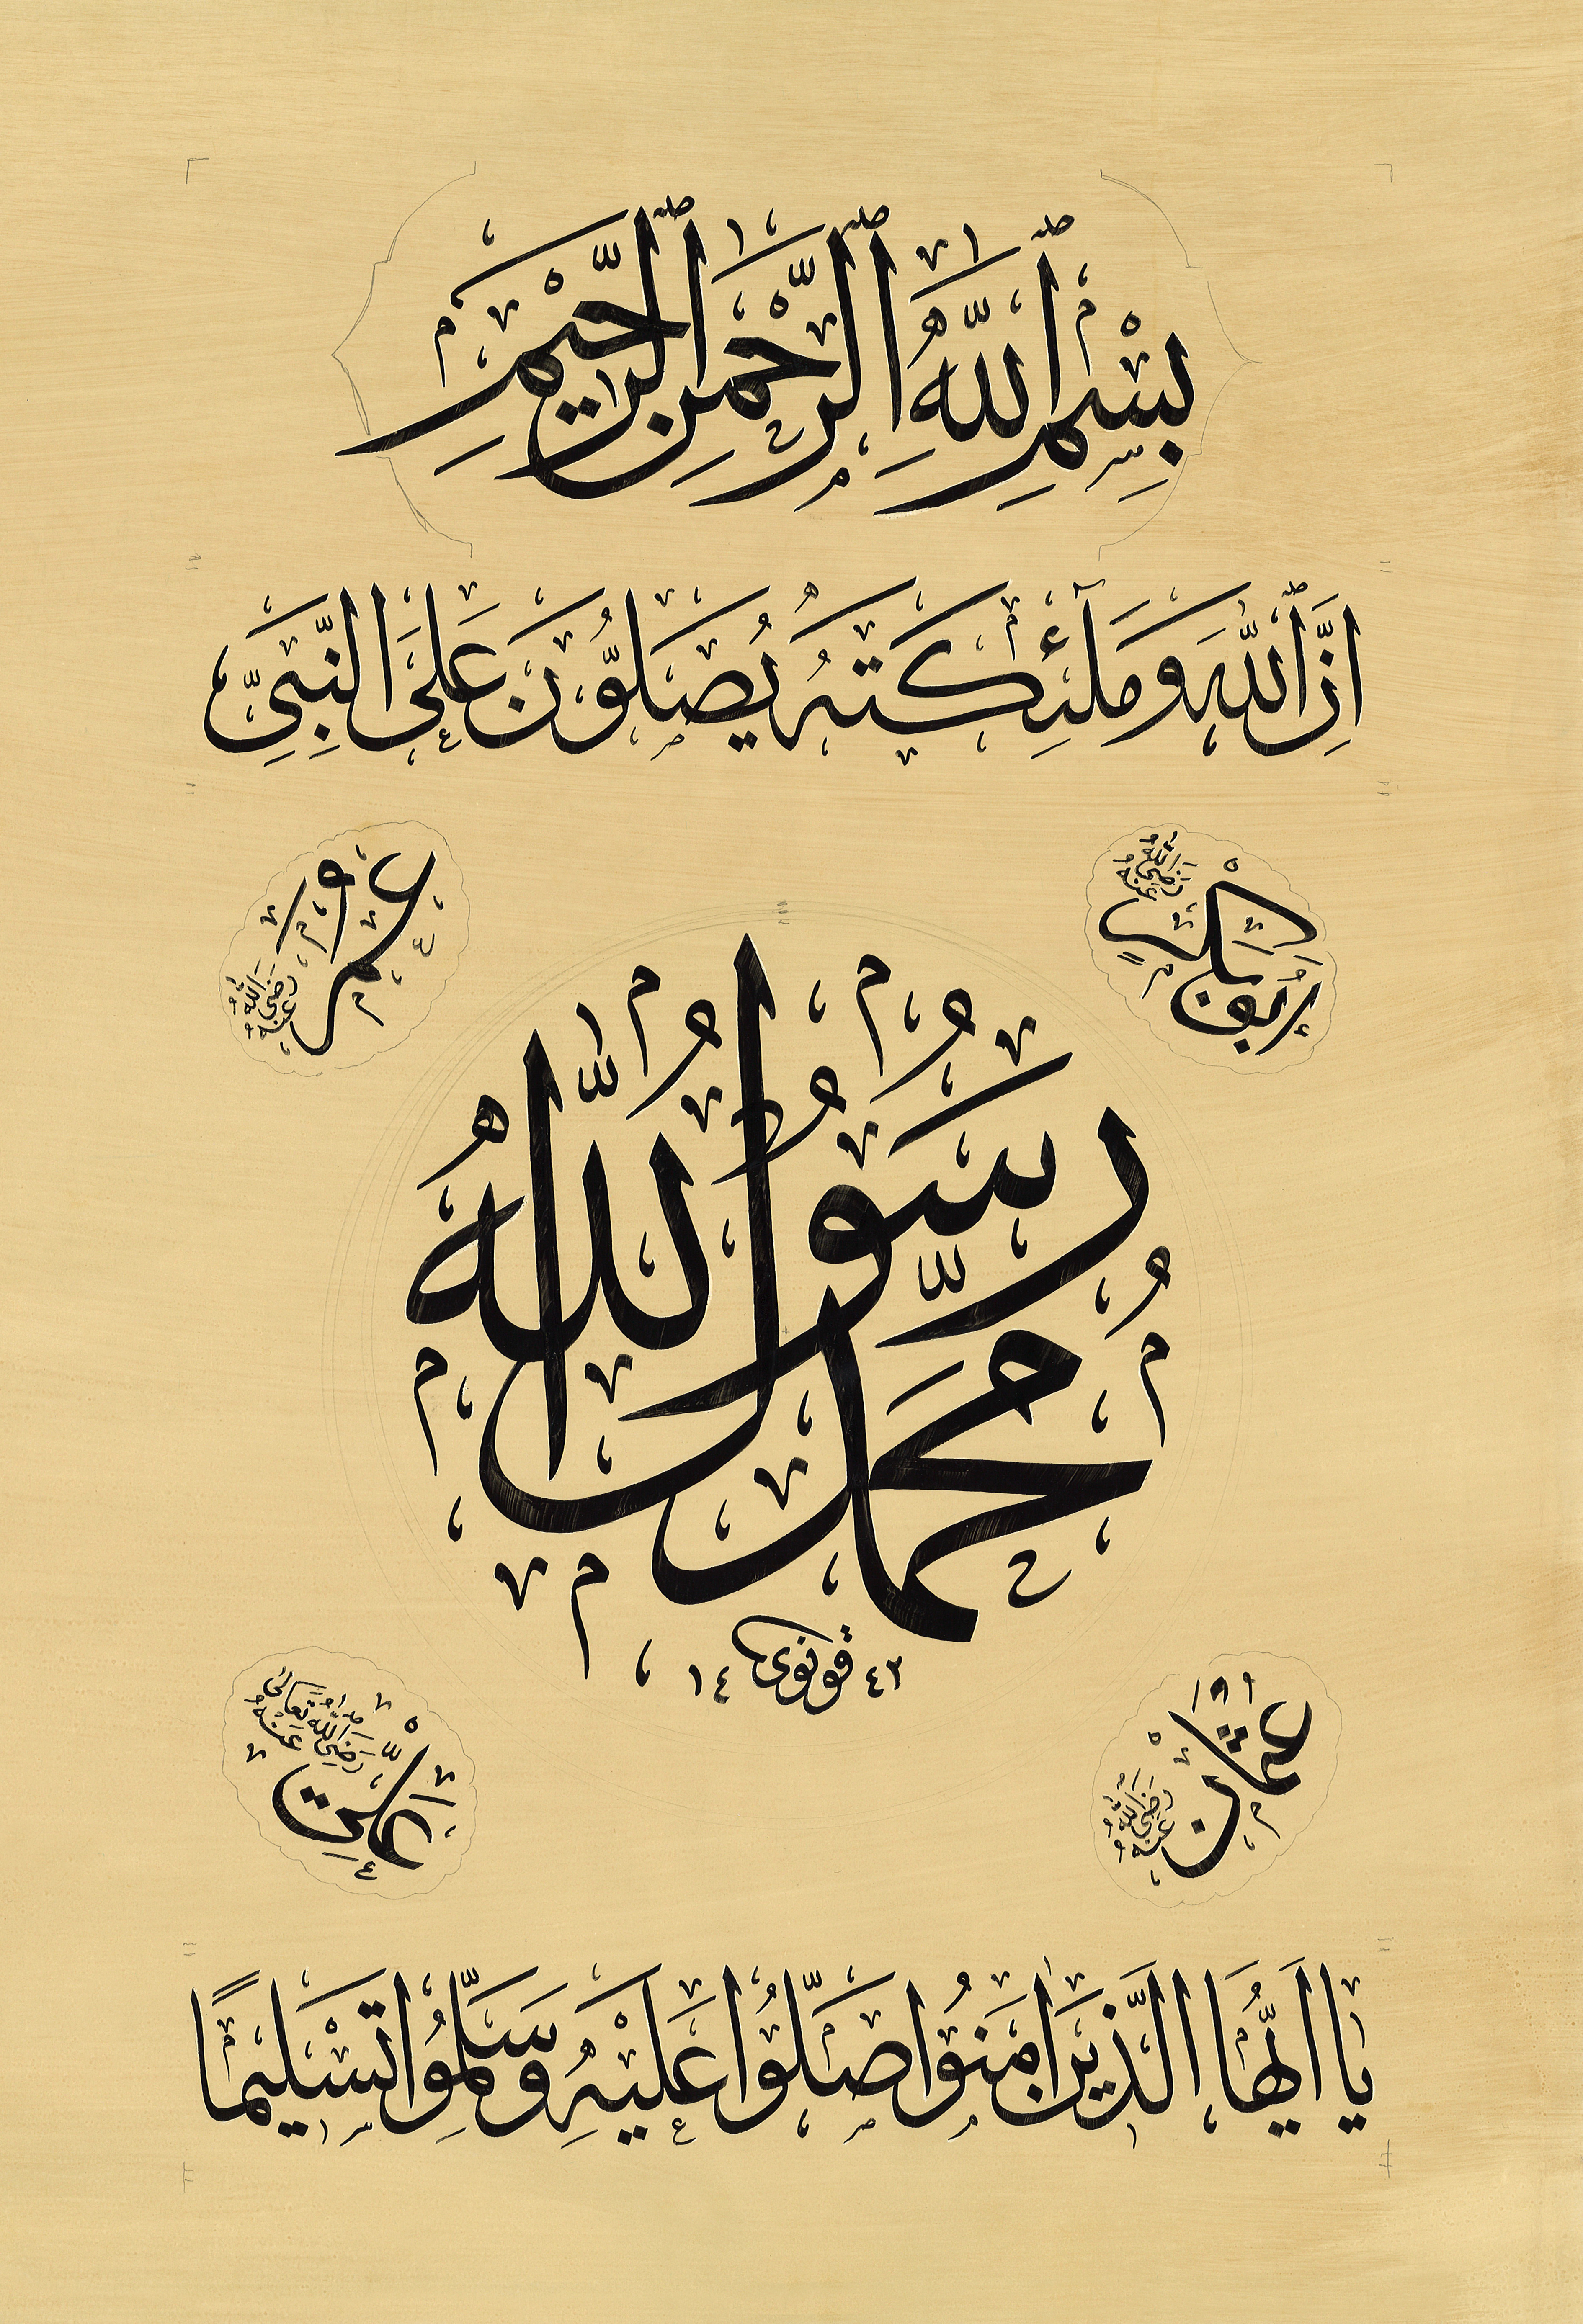 بِسْمِ ٱللَّهِ ٱلرَّحْمَٰنِ ٱلرَّحِيمِ
اِنَّ ٱللَّهَ وَمَلَٰٓئِكَتَهُ يُصَلُّونَ عَلَى النَّبِيِّ
اَبُو بَكْرٍ رَضِيَ اللَّهُ عَنْهُ
عُمَرُ رَضِيَ اللَّهُ عَنْهُ
مُحَمَّد رَسُولُ اللَّه
قونوى ١٤٤٢
عُثْمَان رَضِيَ اللَّهُ عَنْهُ
عَلِيّ رَضِيَ اللَّهُ تَعَالَى عَنْهُ
يَا اَيُّهَا الَّذِينَ اٰمَنُوا صَلُّوا عَلَيْهِ وَسَلِّمُوا تَسْلِيمًا